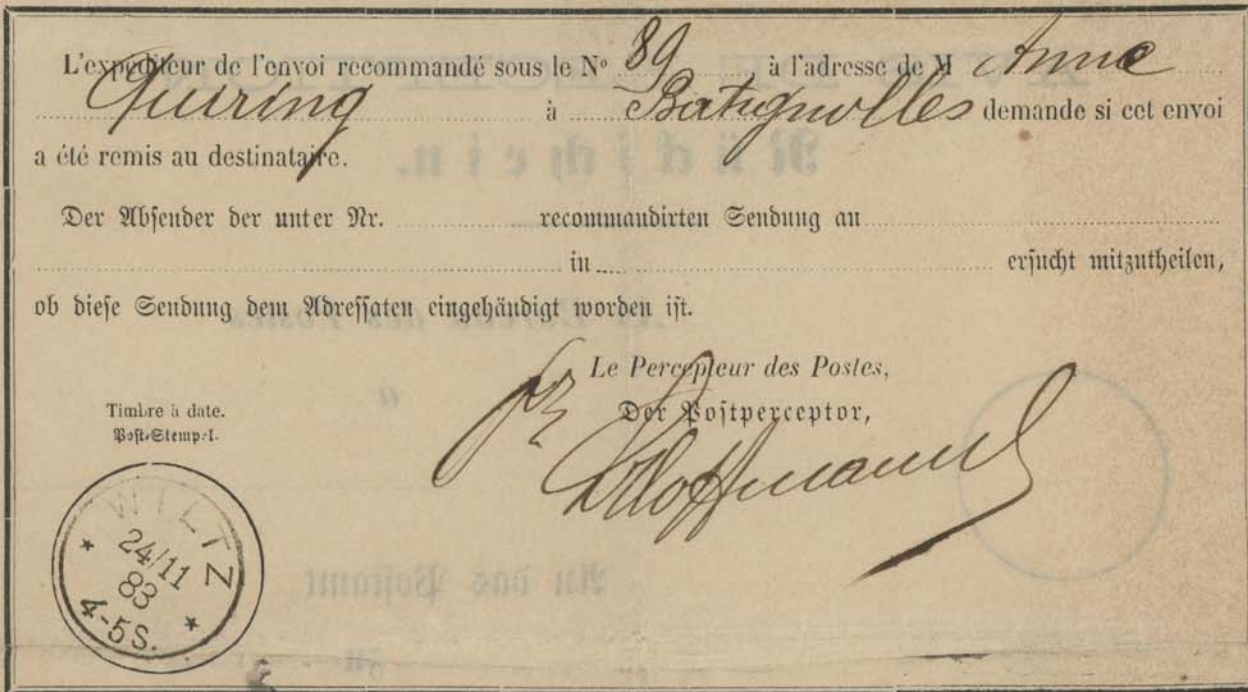 L'expéditeur de l'envoi recommandé sous le Nº 89, à l'adresse de M Anne
Quiring à Batignolles demande si cet envoi
a été remis au destinataire.
Der Absender der unter Nr. recommandirten Sendung an
in ersucht mitzutheilen,
ob diese Sendung dem Adressaten eingehändigt worden ist.
Le Percepteur des Postes,
Der Postperceptor,
Hoffmann
Timbre à date.
Post-Stempel.
WILTZ
24/11
83
4-5S.